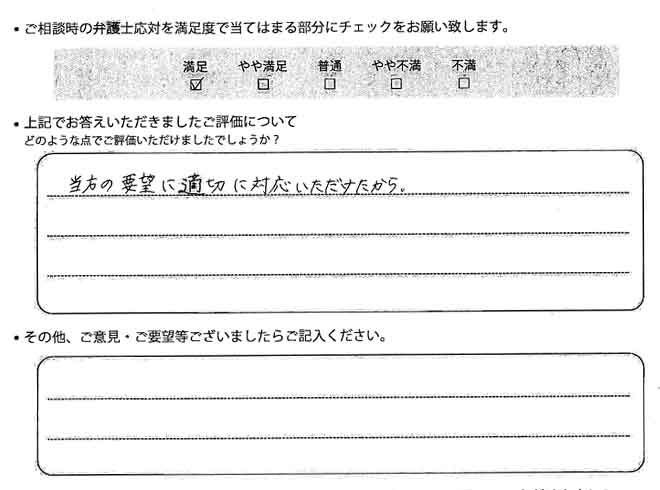 ・ご相談時の弁護士応対を満足度で当てはまる部分にチェックをお願い致します。
満足 やや満足 普通 やや不満 不満
☑ □ □ □ □
・上記でお答えいただきましたご評価について
どのような点でご評価いただけましたでしょうか？
当方の要望に適切に対応いただけたから。
・その他、ご意見・ご要望等ございましたらご記入ください。